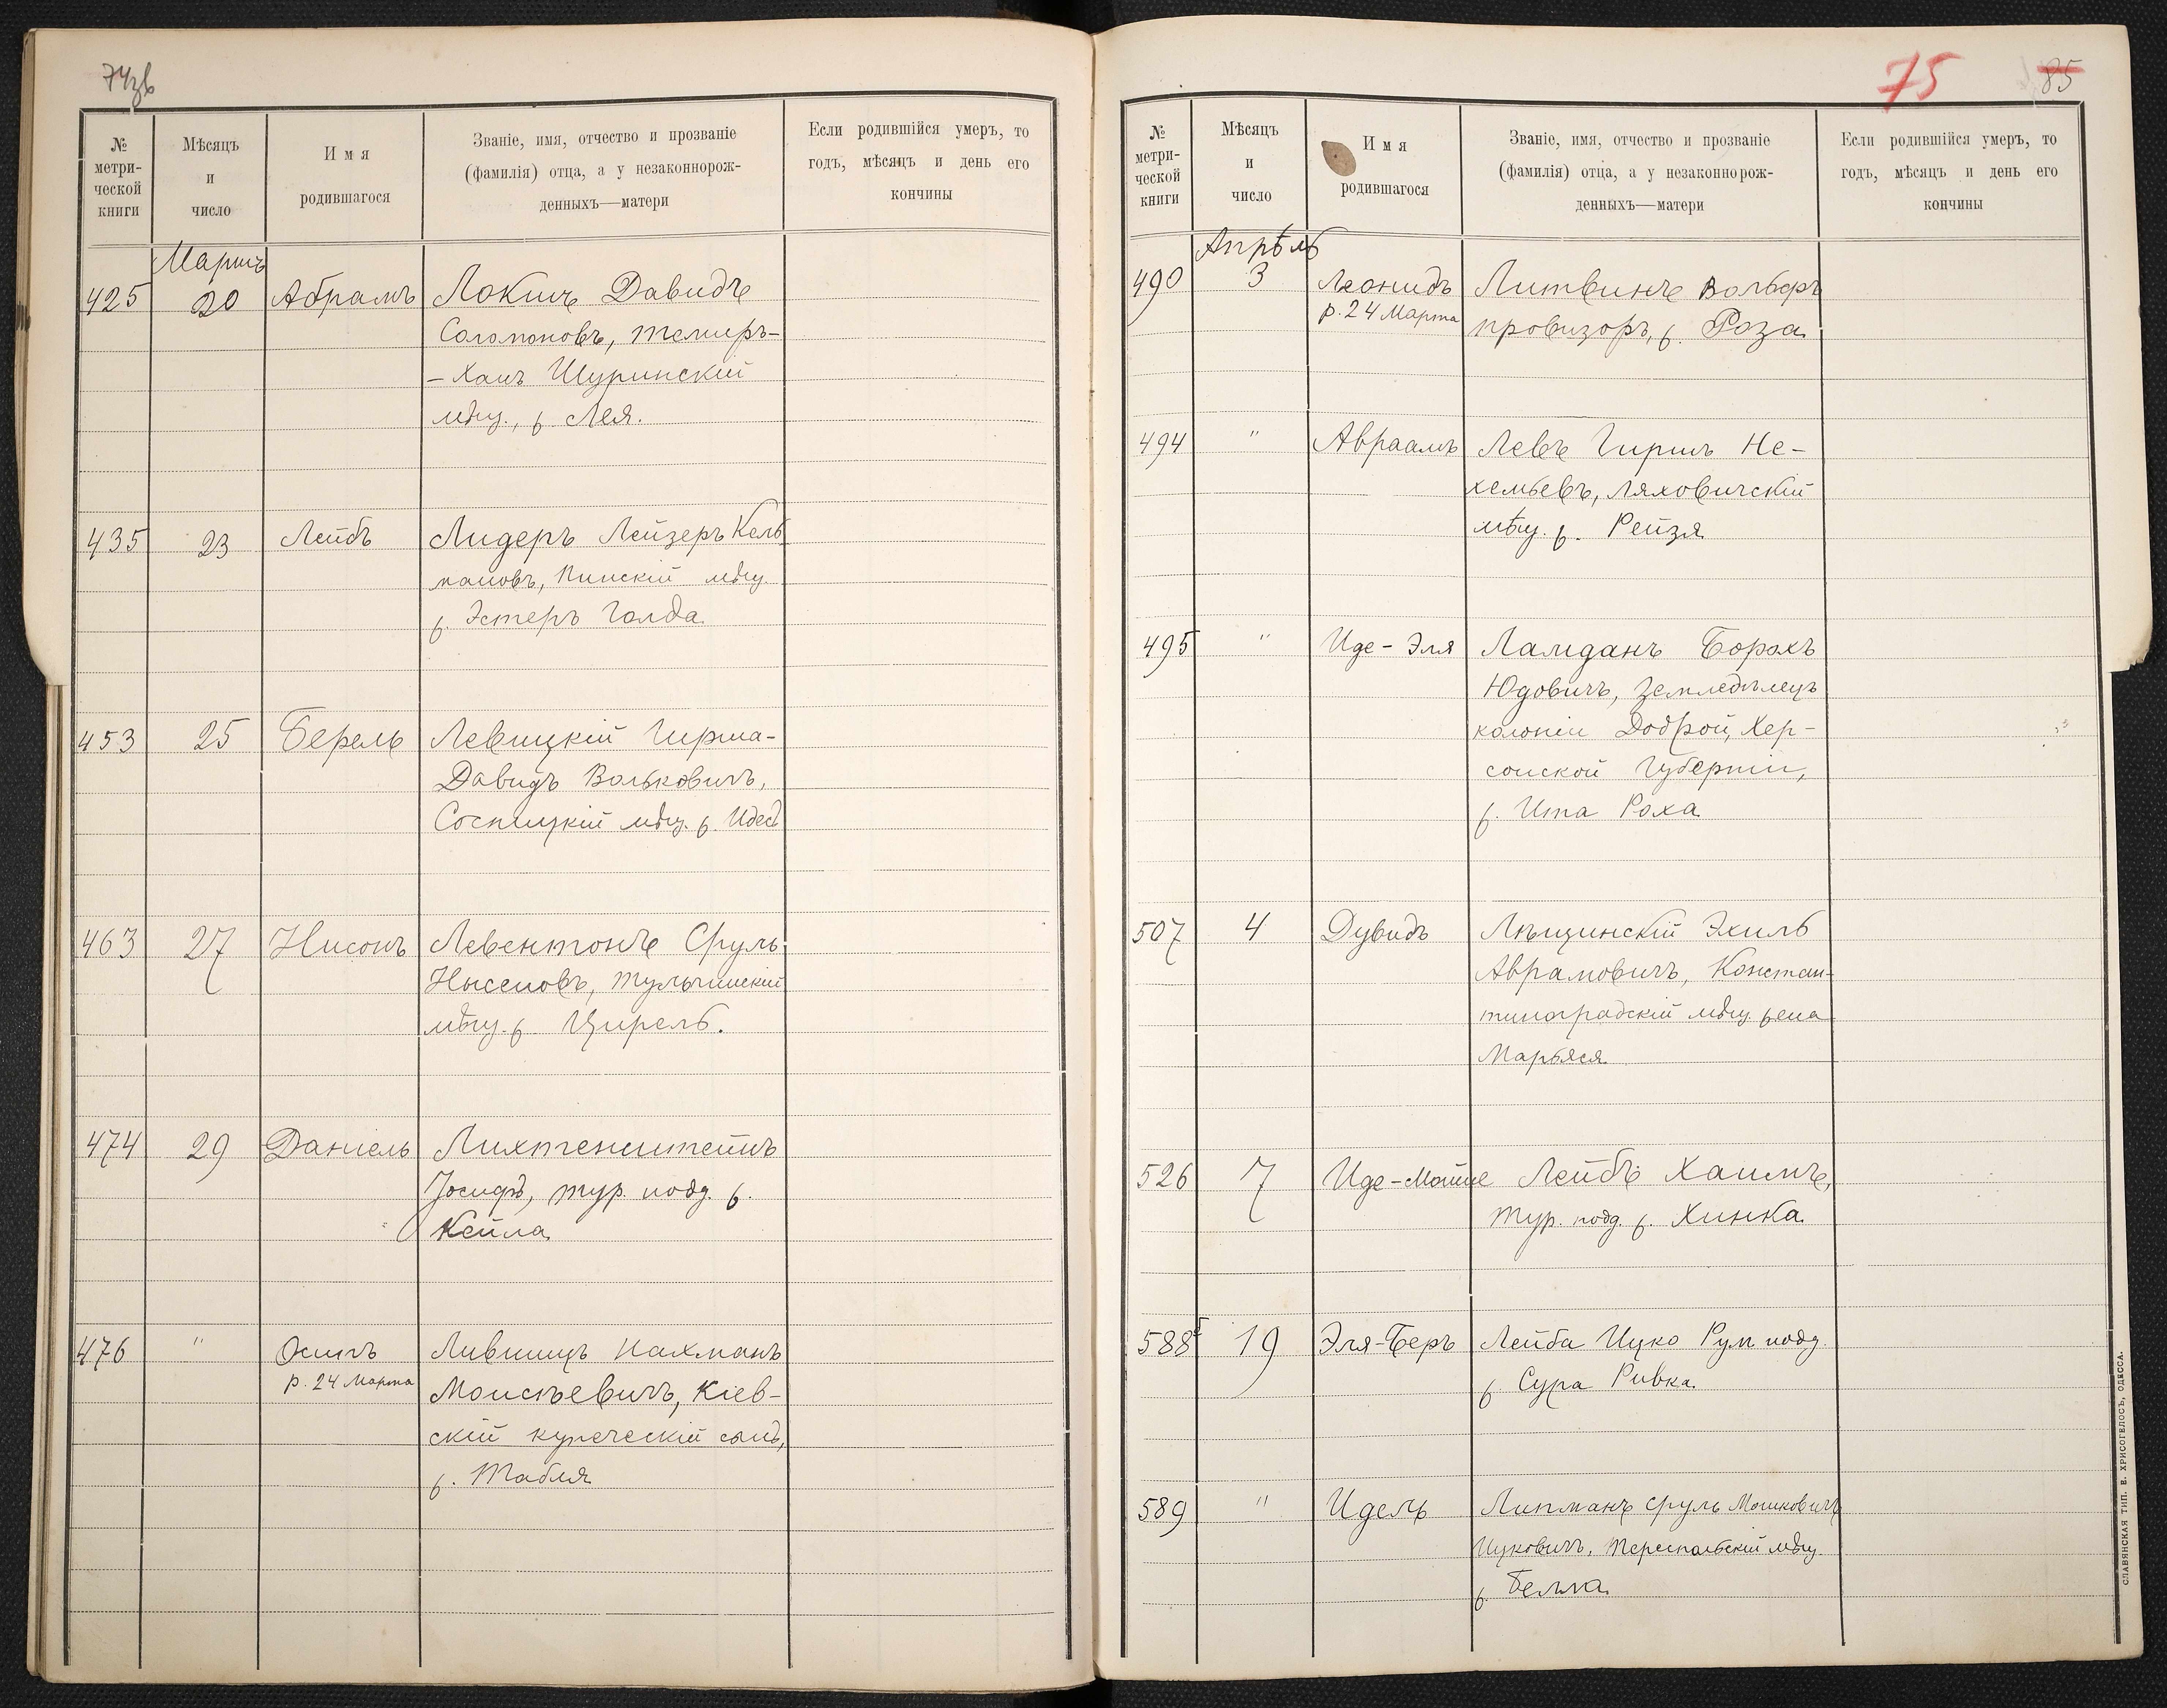 74зв
№ метри- ческой книги
Мѣсяцъ и число
Имя родившагося
Званіе, имя, отчество и прозваніе (фамилія) отца, а у незаконнорож- денныхъ—матери
Если родившійся умеръ, то годъ, мѣсяцъ и день его кончины
Мартъ
425 20 Абрамъ Локшъ Давидъ
Соломоновъ, Темиръ-
-Ханъ Шуринскій
мѣщ., ж. Лея.
435 23 Лейбъ Лидеръ Лейзеръ Кель
мановъ, Пинскій мѣщ.
ж. Эстеръ Голда
453 25 Берель Левицкій Гирша-
Давидъ Вольковичъ,
Сосницкій мѣщ. ж. Идесъ
463 27 Нисонъ Левентонъ Сруль
Нысеновъ, Тульчинскій
мѣщ. ж. Цирель.
474 29 Даніель Лихтенштейнъ
Іосифъ, тур. подд. ж.
Кейла
476 " Осипъ Лившицъ Нахманъ
р. 24 Марта Моисѣевичъ, Кіев-
скій купеческій сынъ,
ж. Табля
75 85
№ метри- ческой книги
Мѣсяцъ и число
Имя родившагося
Званіе, имя, отчество и прозваніе (фамилія) отца, а у незаконнорож- денныхъ—матери
Если родившійся умеръ, то годъ, мѣсяцъ и день его кончины
Апрѣль
490 3 Леонидъ Литвинъ Вольфъ
р. 24 Марта провизоръ, ж. Роза
494 " Авраамъ Левъ Гиршъ Не-
хемьевъ, Ляховичскій
мѣщ. ж. Рейзя
495 " Иде-Эля Ламданъ Борохъ
Юдовичъ, земледѣлецъ
колоніи Доброй, Хер-
сонской Губерніи,
ж. Ита Роха
507 4 Дувидъ Лѣщинскій Эхиль
Аврамовичъ, Констан-
тиноградскій мѣщ. жена
Марьяся
526 7 Иде-Мойше Лейбъ Хаимъ,
тур. подд. ж. Хинка
588 19 Эля-Беръ Лейба Ицко Рум подд.
ж. Сура Ривка
589 " Идель Липманъ Сруль Мошковичъ
Ицковичъ, мѣщ.
ж. Белла
СЛАВЯНСКАЯ ТИП. Е. ХРИСОГЕЛОСЪ, ОДЕССА.